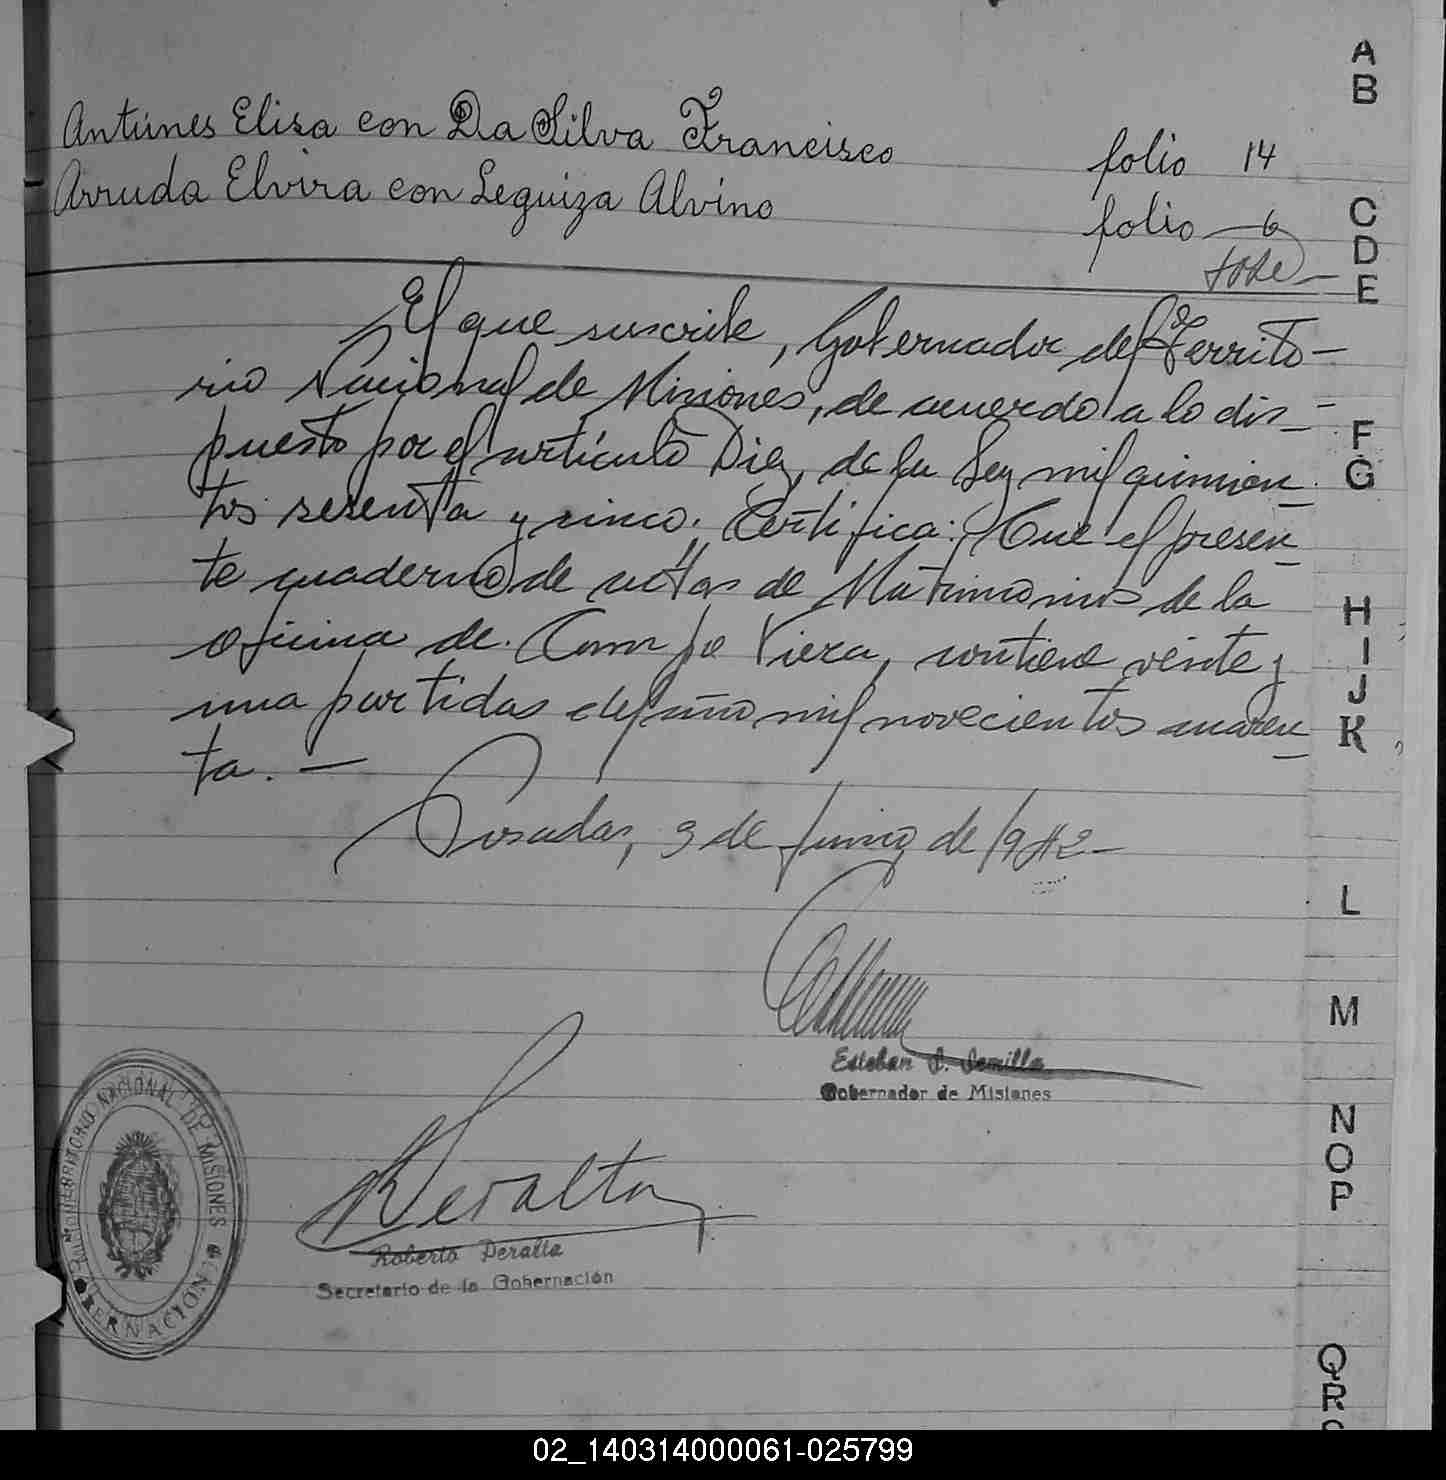 Antúnes Elisa con Da Silva Francisco folio 14
Arruda Elvira con Leguiza Alvino folio 6
El que suscribe, Gobernador del Territo-
rio Nacional de Misiones, de acuerdo a lo dis-
puesto por el artículo Diez, de la Ley mil quinien-
tos sesenta y cinco. Certifica: Que el presen-
te cuaderno de actas de Matrimonios de la
oficina de Campo Viera, contiene veinte y
una partidas del año mil novecientos cuaren-
ta. —
Posadas, 3 de Junio de 1942-
Esteban
Gobernador de Misiones
Peralta
Roberto Peralta
Secretario de la Gobernación
TERRITORIO NACIONAL DE MISIONES
GOBERNACION
A
B
C
D
E
F
G
H
I
J
K
L
M
N
O
P
Q
R
02_140314000061-025799